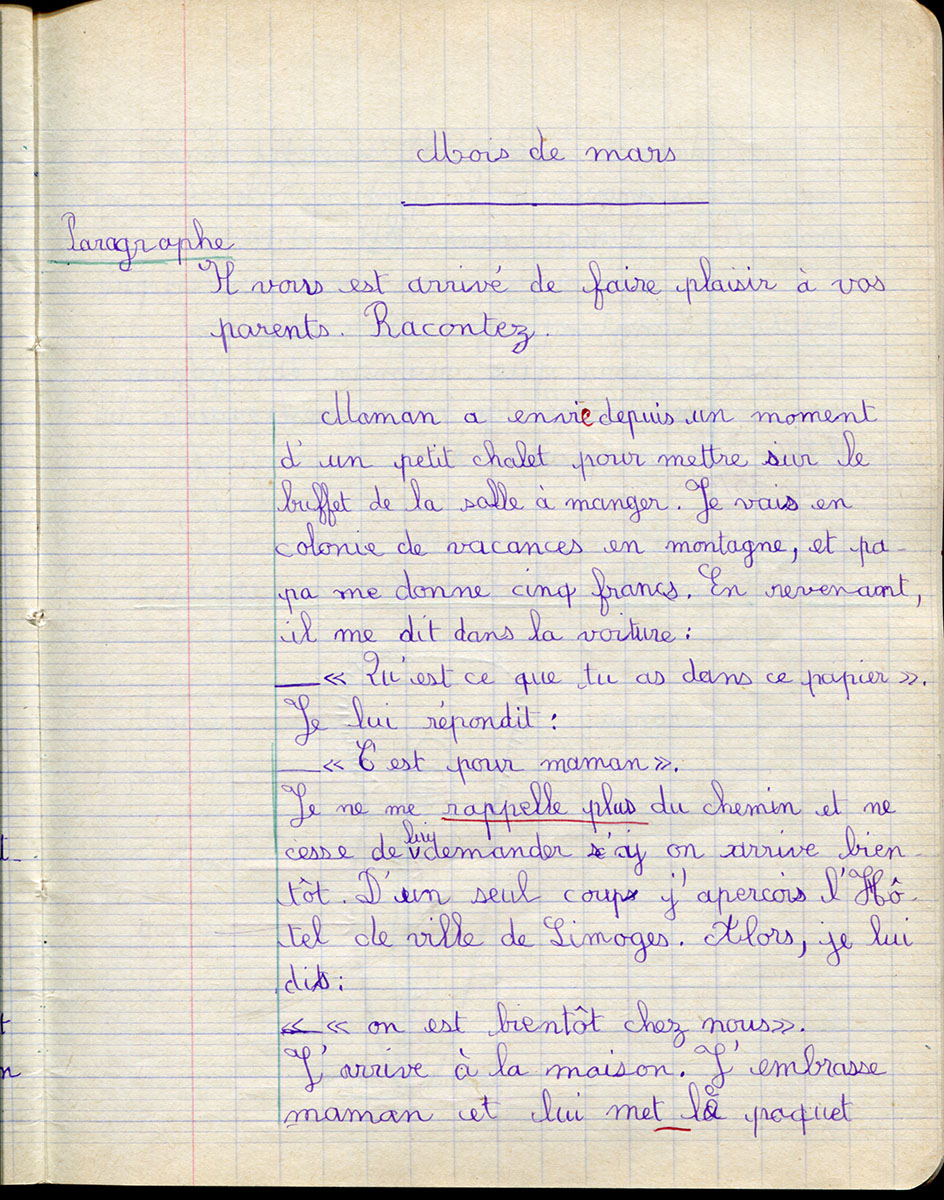 Mois de mars
Paragraphe
Il vous est arrivé de faire plaisir à vos
parents. Racontez.
Maman a envie depuis un moment
d'un petit chalet pour mettre sur le
buffet de la salle à manger. Je vais en
colonie de vacances en montagne, et pa-
pa me donne cinq francs. En revenant,
il me dit dans la voiture :
— « Qu'est ce que tu as dans ce papier ».
Je lui répondit :
— « C'est pour maman ».
Je ne me rappelle plus du chemin et ne
cesse de lui demander on arrive bien-
tôt. D'un seul coup j'apercois l'Hô-
tel de ville de Limoges. Alors, je lui
dis :
« on est bientôt chez nous ».
J'arrive à la maison. J'embrasse
maman et lui met le paquet
t
t
n